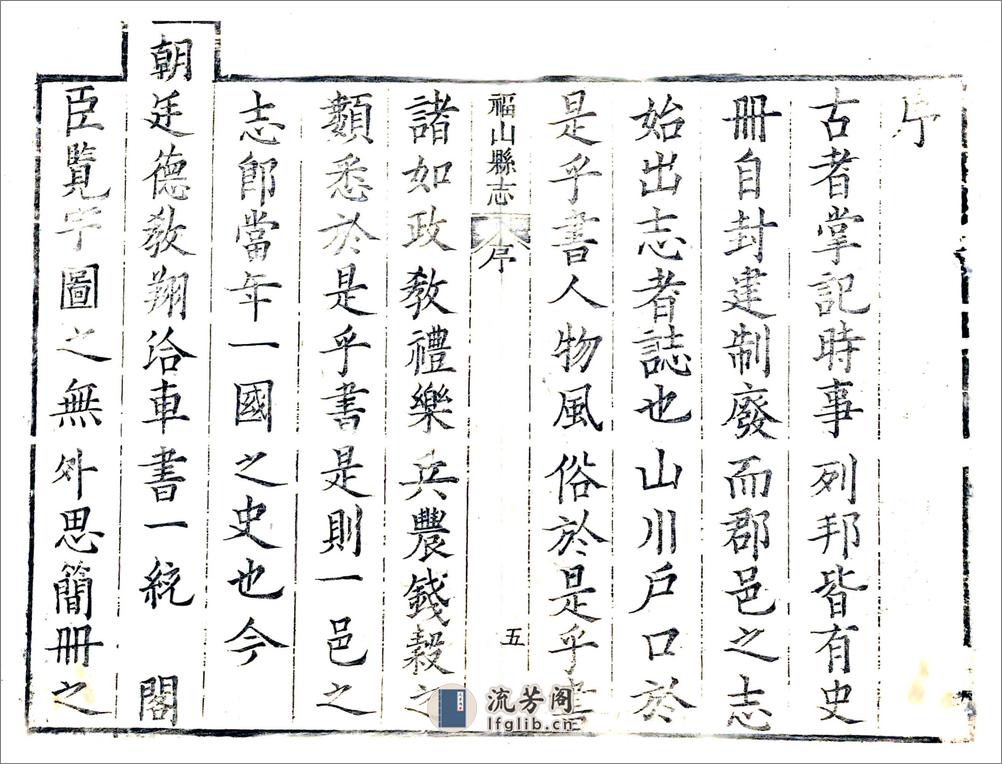 序
古者掌記時事列邦皆有史
冊自封建制廢而郡邑之志
始出志者誌也山川戶口於
是乎書人物風俗於是乎書
福山縣志 序 五
諸如政敎禮樂兵農錢穀之
類悉於是乎書是則一邑之
志卽當年一國之史也今
朝廷德敎翔洽車書一統 閣
臣覽宇圖之無外思簡冊之
流芳阁
lfglib.cn